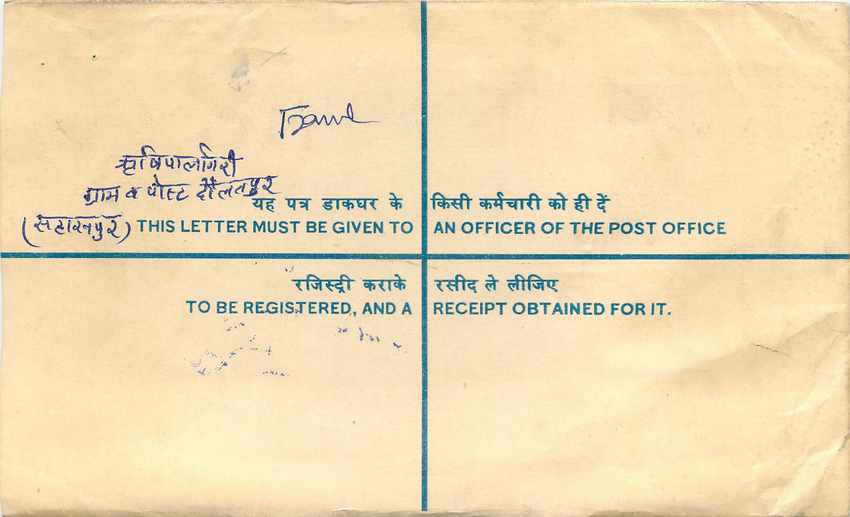 ऋषिपालगिरी
ग्राम व पोस्ट दौलतपुर
(सहारनपुर)
यह पत्र डाकघर के किसी कर्मचारी को ही दें
THIS LETTER MUST BE GIVEN TO AN OFFICER OF THE POST OFFICE
रजिस्ट्री कराके रसीद ले लीजिए
TO BE REGISTERED, AND A RECEIPT OBTAINED FOR IT.